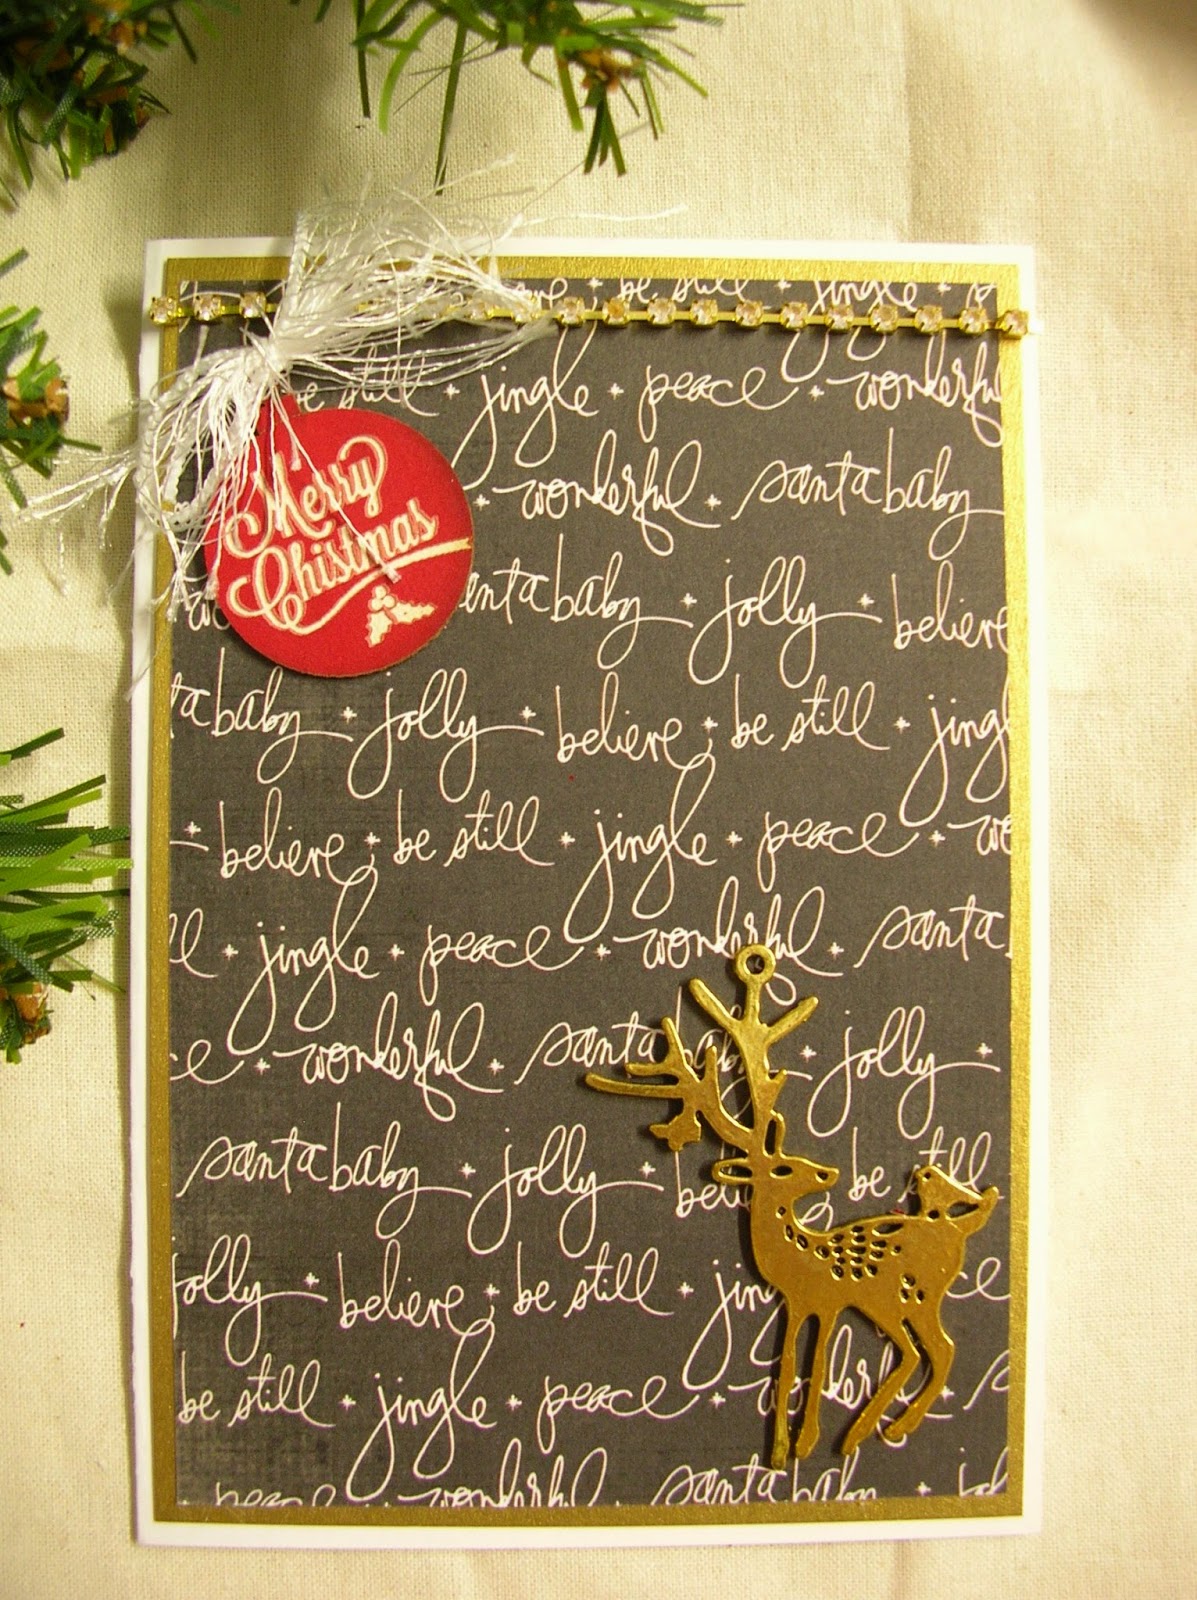 be still jingle
be still jingle peace wonderful
Merry
Chistmas
wonderful santa baby
baby jolly believe
baby jolly believe be still
believe be still jingle peace
jingle peace wonderful santa
wonderful santa baby jolly
santa baby jolly be still
jolly believe be still
be still jingle peace wonderful
peace wonderful santa baby